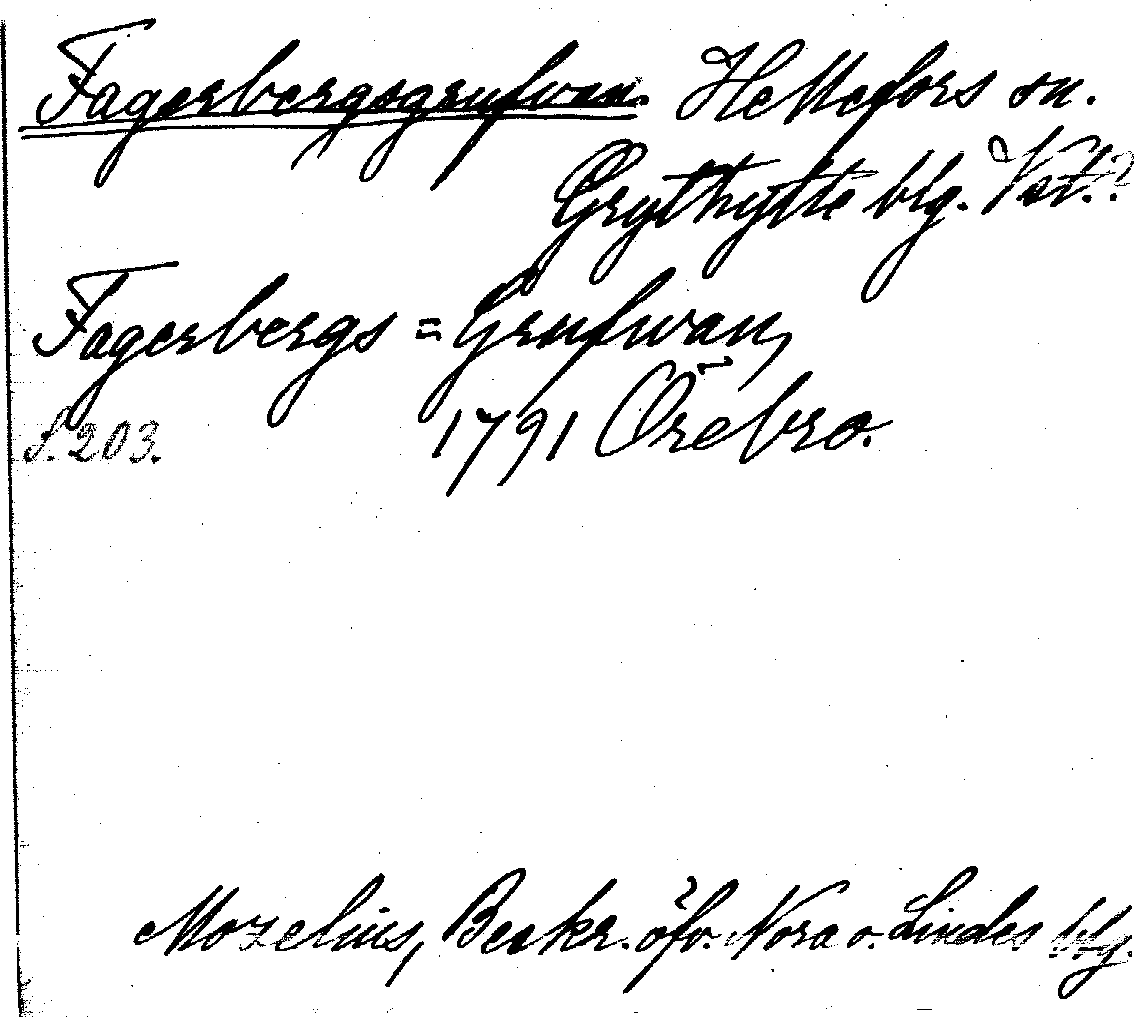 Fagerbergsgrufwan. Hellefors sn.
Grythytte blg. Vstl.?
Fagerbergs = Grufwan,
s. 203. 1791 Örebro.
Mozelius, Beskr. öfv. Nora o. Lindes blg.